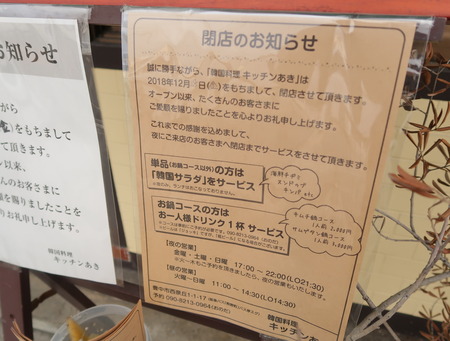 お知らせ
がら
をもちまして
て頂きます。
オープン以来、
さんのお客さまに
を賜りましたことを
お礼申し上げます。
韓国料理
キッチンあき
閉店のお知らせ
誠に勝手ながら、「韓国料理 キッチンあき」は
2018年12月 日(金)をもちまして、閉店させて頂きます。
オープン以来、たくさんのお客さまに
ご愛顧を賜りましたことを心よりお礼申し上げます。
これまでの感謝を込めまして、
夜にご来店のお客さまへ閉店までサービスをさせて頂きます。
単品(お鍋コース以外)の方は
「韓国サラダ」をサービス
※夜のみ。ランチはおこなっておりません。
海鮮チヂミ
キンパ etc
お鍋コースの方は
お一人様ドリンク1杯 サービス
キムチ鍋コース
1人前
サムゲタン鍋コース
1人前
【夜の営業】
金曜・土曜・日曜 17:00～22:00(LO21:30)
※火～木もご予約を頂きましたら、夜の営業もいたします。
【昼の営業】
火曜～日曜 11:00～14:30(LO14:30)
豊中市西泉丘1-1-17
予約 090-8213-0964
韓国料理
キッチンあき